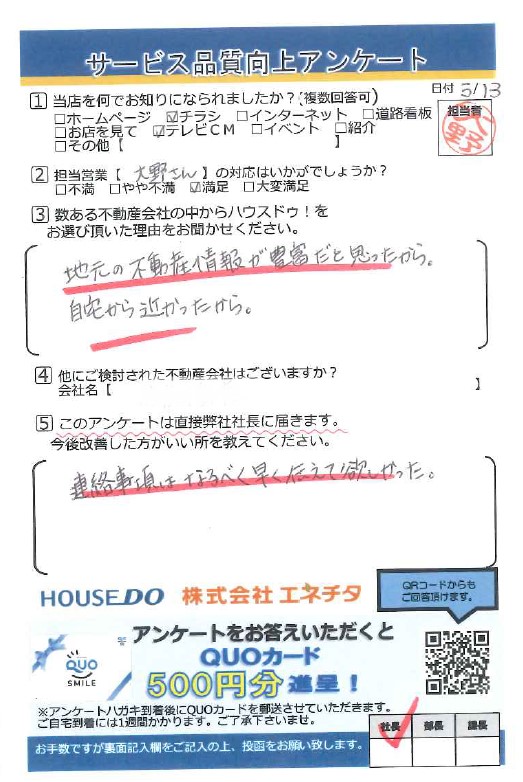 サービス品質向上アンケート
日付 5/13
1 当店を何でお知りになられましたか?(複数回答可)
□ホームページ ☑チラシ □インターネット □道路看板
□お店を見て ☑テレビCM □イベント □紹介
□その他【 】
担当者
2 担当営業【 大野さん 】の対応はいかがでしょうか?
□不満 □やや不満 ☑満足 □大変満足
3 数ある不動産会社の中からハウスドゥ!を
お選び頂いた理由をお聞かせください。
地元の不動産情報が豊富だと思ったから。
自宅から近かったから。
4 他にご検討された不動産会社はございますか?
会社名【 】
5 このアンケートは直接弊社社長に届きます。
今後改善した方がいい所を教えてください。
連絡事項はなるべく早く伝えて欲しかった。
HOUSE DO 株式会社 エネチタ
QRコードからも
ご回答頂けます。
アンケートをお答えいただくと
QUOカード
500円分 進呈!
QUO
SMILE
※アンケートハガキ到着後にQUOカードを郵送させていただきます。
ご自宅到着には1週間かかります。ご了承下さいませ。
社長 部長 課長
お手数ですが裏面記入欄をご記入の上、投函をお願い致します。